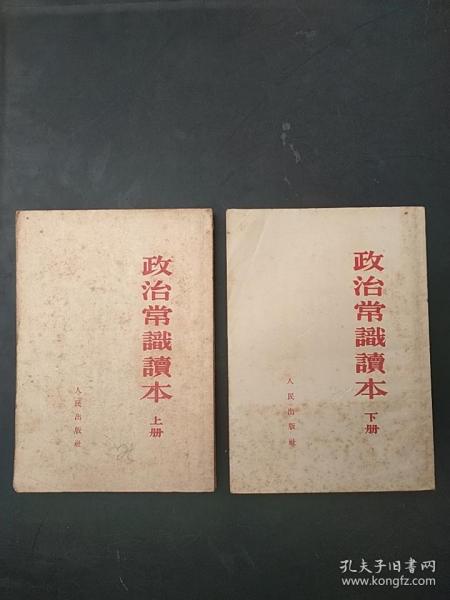 政治常識讀本
上册
人民出版社
政治常識讀本
下册
人民出版社
孔夫子旧书网
www.kongfz.com